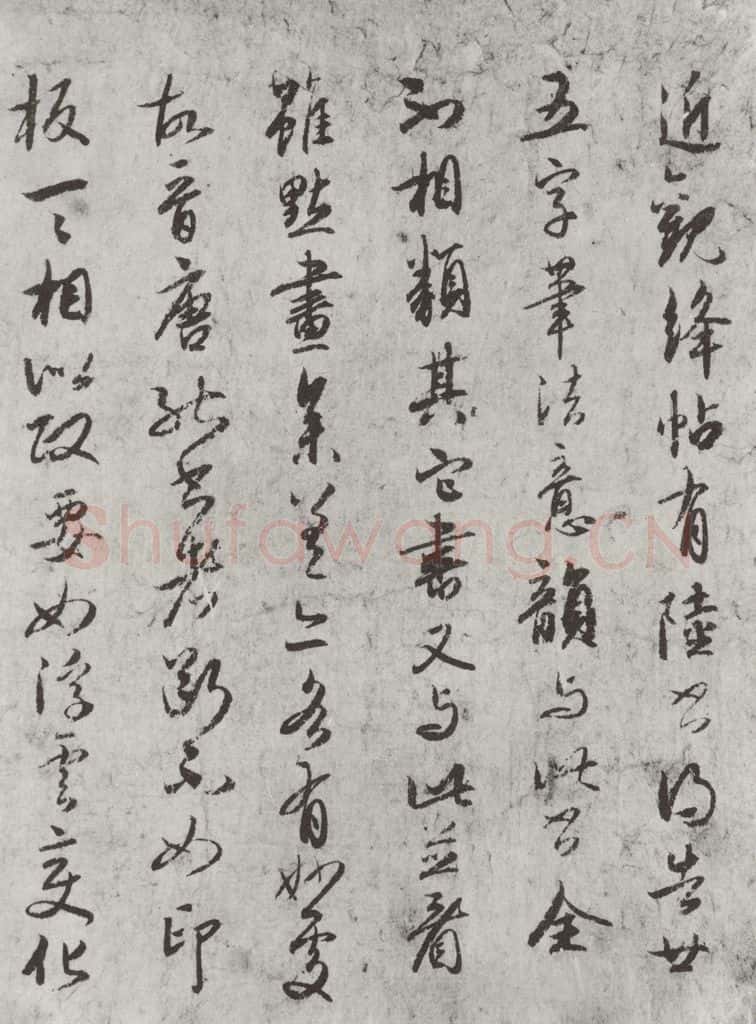 近觀絳帖有陸公得告廿
五字筆法意韻与此公全
不相類其它書又与此並看
雖點畫參差亦各有妙處
故晉唐能書者斷不如印
板一一相似政要如浮雲變化
Shufawang.CN